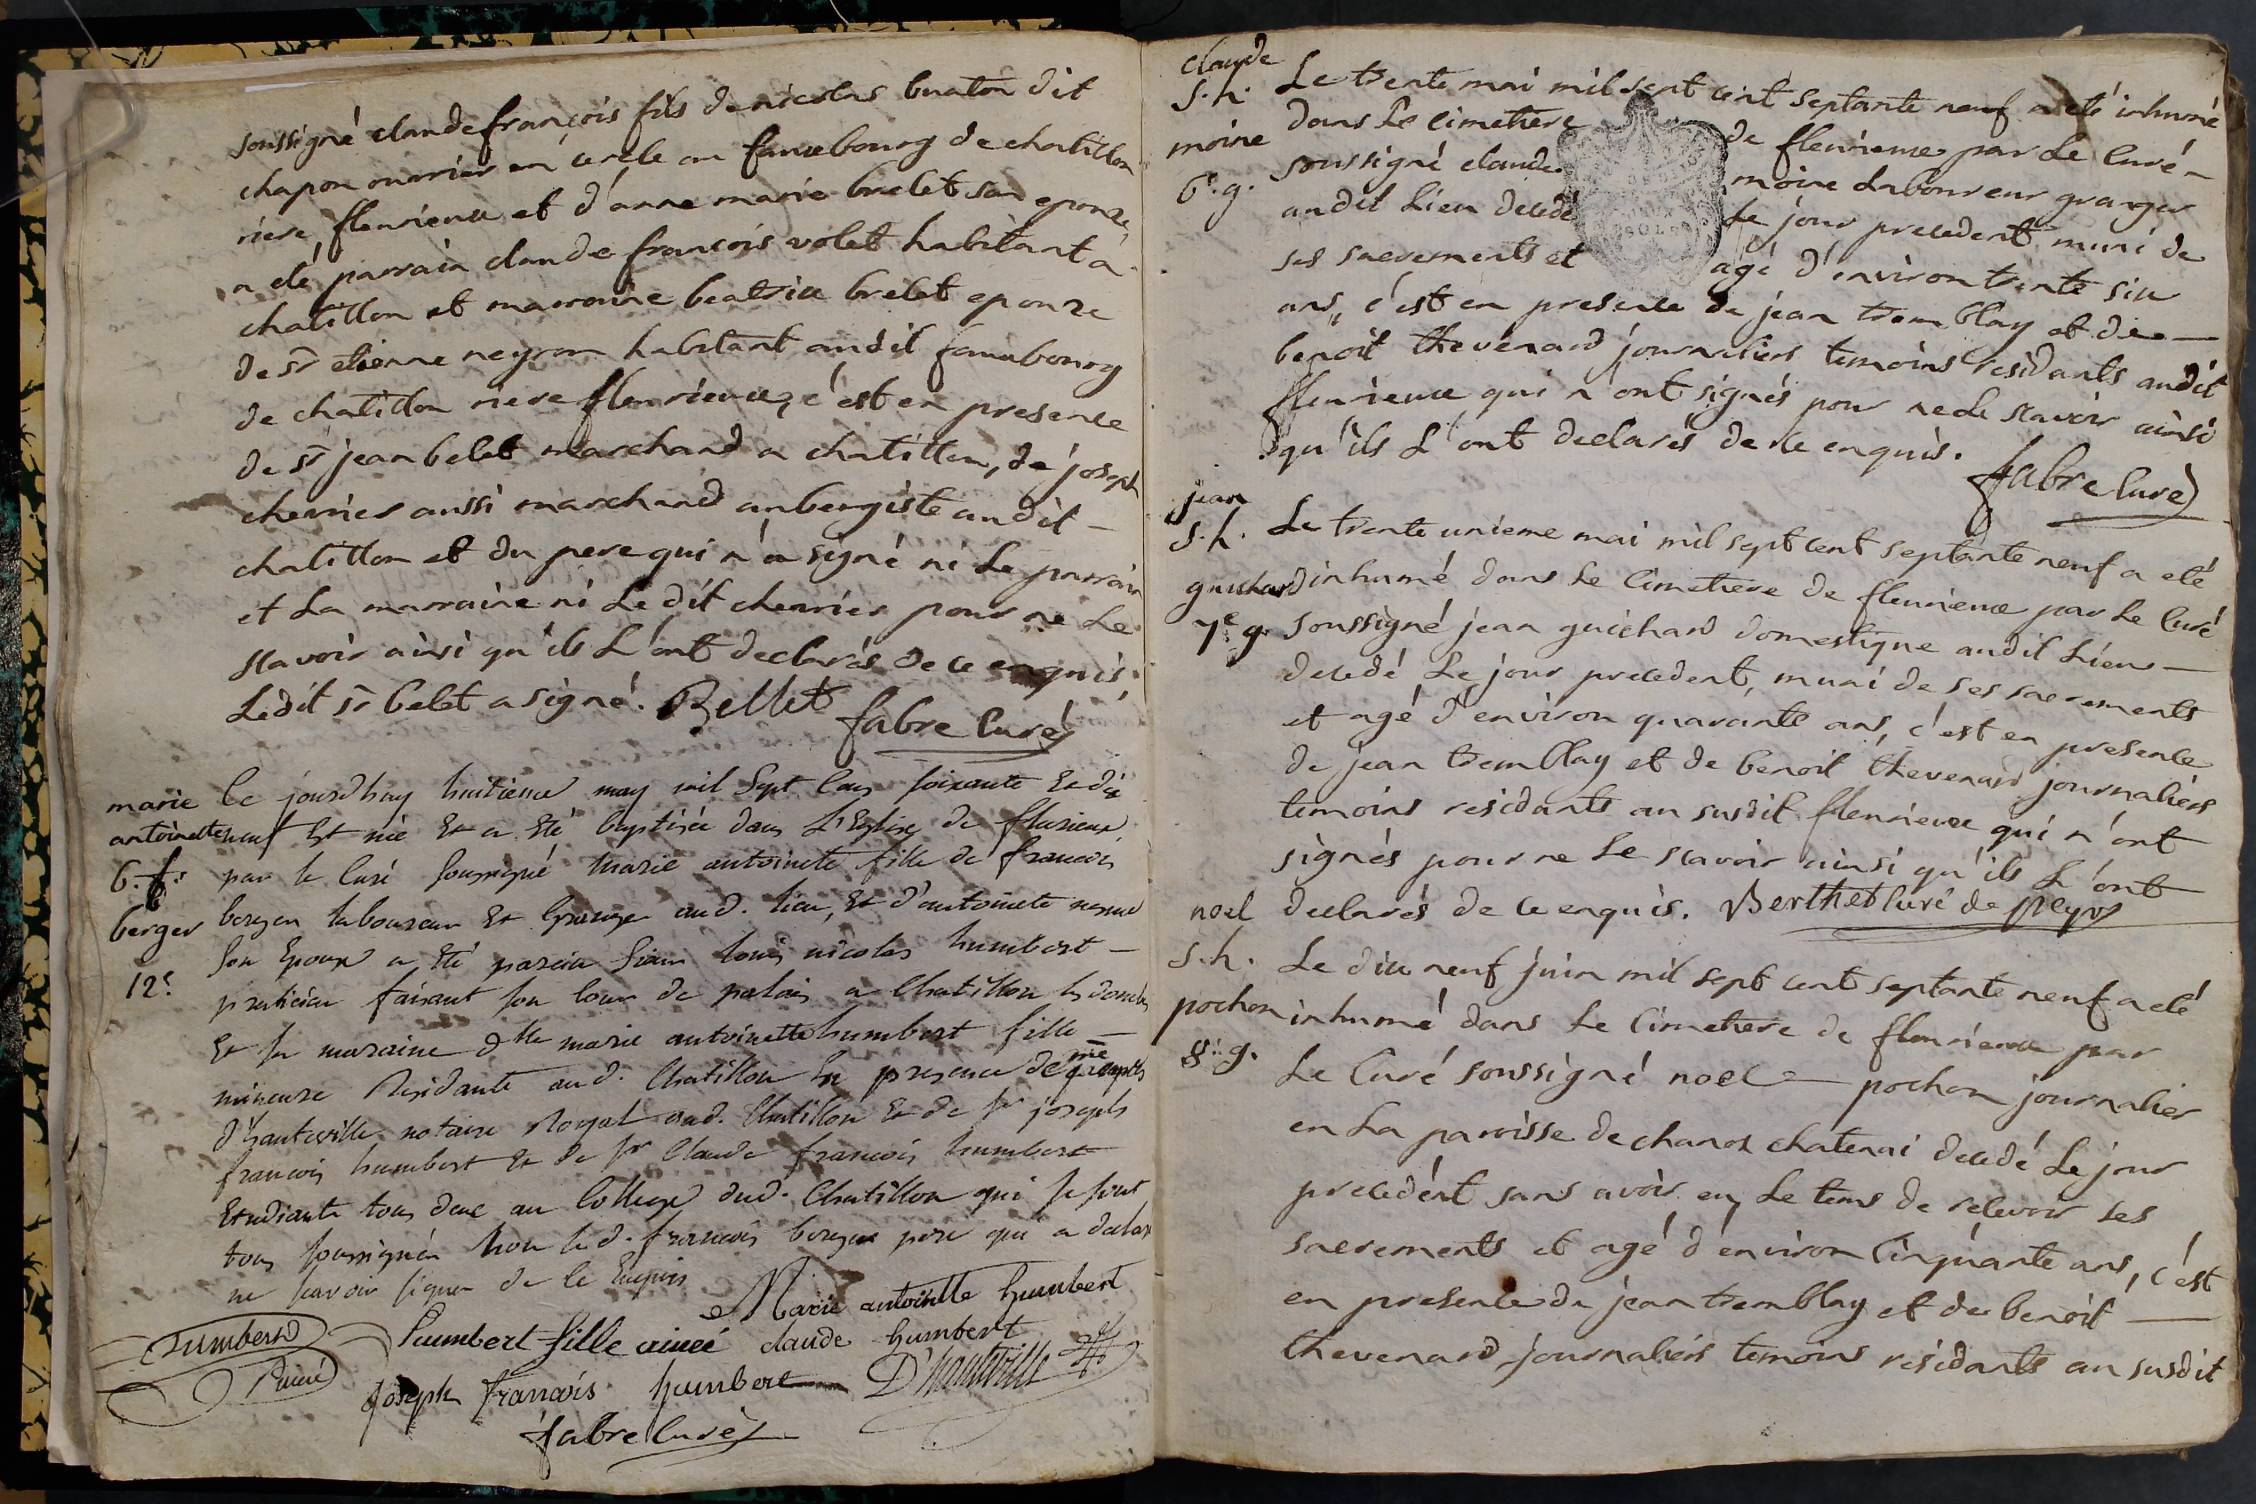 soussigné claude françois fils de nicolas buaton dit
chapon ouvrier en cercle au fauxbourg de chatillon
riere fleurieux et d'anne marie brelet son epouze,
a eté parrain claude françois volet habitant a
chatillon et marraine beatrix brelet epouze
de sr etienne neyron habitant audit fauxbourg
de chatillon riere fleurieux, c'est en presence
de sr jean belet marchand a chatillon, de joseph
cherrier aussi marchand aubergiste audit
chatillon et du pere qui n'a signé ni le parrain
et la marraine ni le dit cherrier pour ne le
scavoir ainsi qu'ils l'ont declarés de ce enquis.
Ledit sr belet a signé. Bellet
fabre curé
marie
antoinette
b. f.
berger
12e
Ce jourdhuy huitieme may mil Sept Cens soixante et dix
neuf Est née Et a Eté baptisée dans L'Eglise de flurieux
par le Curé soussigné marie antoinete fille de francois
berger laboureur Et Granger aud. lieu, Et d'antoinete
son Epouse a Eté parein sieur louis nicolas humbert
praticien faisant son cours de palais a Chatillon les dombes
Et la maraine dlle marie antoinette humbert fille
mineure Residante aud. Chatillon En presence de me
d'hauteville notaire Royal aud. Chatillon Et de sr joseph
francois humbert Et de sr Claude francois humbert
Etudiants tous deux au College dud. Chatillon qui se sont
tous soussignés non led. francois berger pere qui a declaré
ne savoir signer de ce Enquis
Marie antoinette humbert
humbert
humbert fille ainée claude humbert
joseph francois humbert D'hauteville
fabre curé
claude
s. h.
moine
6e. g.
Le trente mai mil sept cent septante neuf a eté inhumé
dans le cimetiere de fleurieux par le curé
soussigné claude moine laboureur granger
audit lieu decedé le jour precedent muni de
ses sacrements et agé d'environ trente six
ans, c'est en presence de jean tremblay et de
benoit thevenard journaliers temoins residants audit
fleurieux qui n'ont signés pour ne le scavoir ainsi
qu'ils l'ont declarés de ce enquis.
fabre curé
jean
s. h.
guichard
7e g.
Le trente unieme mai mil sept cent septante neuf a eté
inhumé dans le cimetiere de fleurieux par le curé
soussigné jean guichard domestique audit lieu
decedé le jour precedent, muni de ses sacrements
et agé d'environ quarante ans, c'est en presence
de jean tremblay et de benoit thevenard journaliers
temoins residants au susdit fleurieux qui n'ont
signés pour ne le scavoir ainsi qu'ils l'ont
declarés de ce enquis. Berthet curé de
noel
s. h.
pochon
8e g.
Le dix neuf juin mil sept cent septante neuf a eté
inhumé dans le cimetiere de fleurieux par
le Curé soussigné noel pochon journalier
en la paroisse de chanoz chatenai decedé le jour
precedent sans avoir eu le tems de recevoir ses
sacrements et agé d'environ cinquante ans, c'est
en presence de jean tremblay et de benoit
thevenard journaliers temoins residants au susdit